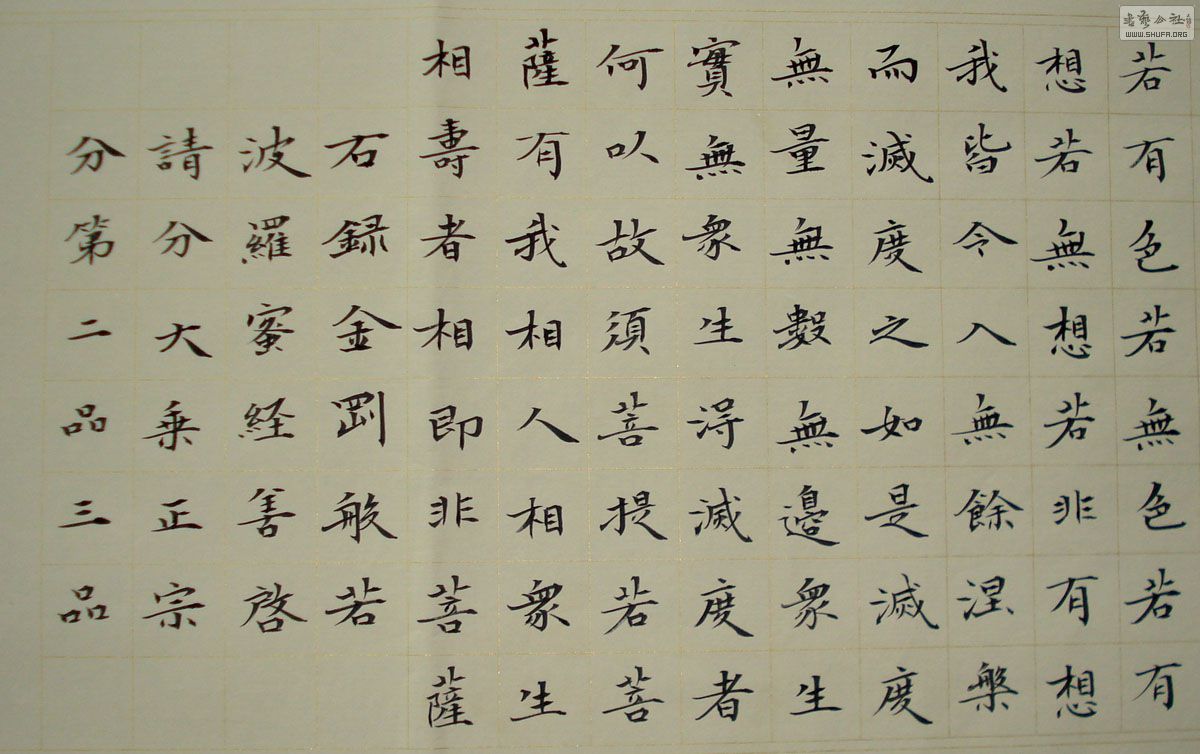 若有色若無色若有
想若無想若非有想
我皆令入無餘涅槃
而滅度之如是滅度
無量無數無邊衆生
實無衆生淂滅度者
何以故須菩提若菩
薩有我相人相衆生
相壽者相即非菩薩
右録金剛般若
波羅蜜経善啓
請分大乗正宗
分第二品三品
书艺公社
WWW.SHUFA.ORG